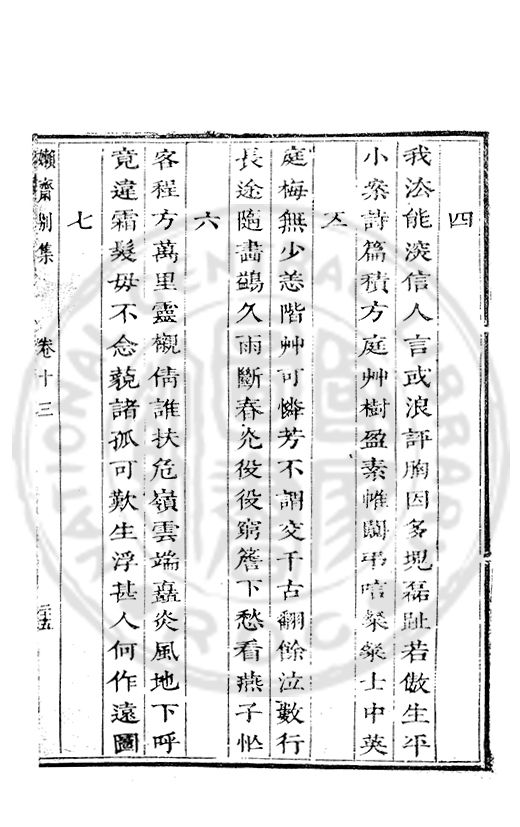 四
我法能深信人言或浪評胸因多塊磊趾若傲生平
小案詩篇積方庭艸樹盈素帷聞弔唁粲粲士中英
五
庭梅無少恙階艸可憐芳不謂交千古翻餘泣數行
長途隨畵鷁久雨斷春光役役窮簷下愁看燕子忙
六
客程方萬里靈櫬倩誰扶危嶺雲端矗炎風地下呼
竟違霜髮毋不念藐諸孤可歎生浮甚人何作遠圖
七
嬾齋別集 卷十三